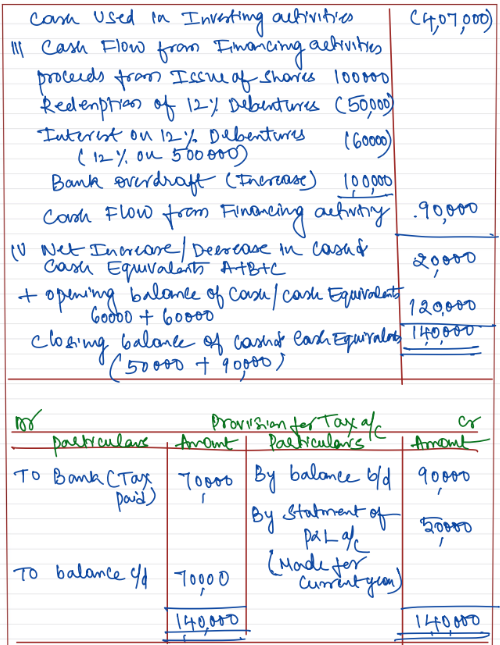 Cash Used in Investing activities (4,07,000)
III Cash Flow from Financing activities
proceeds from Issue of shares 100000
Redemption of 12% Debentures (50,000)
Interest on 12% Debentures (60000)
(12% on 500000)
Bank overdraft (Increase) 1,00,000
Cash Flow from Financing activity .90,000
IV Net Increase/Decrease in cash &
Cash Equivalents A+B+C 20,000
+ opening balance of Cash/cash Equivalents
60000 + 60000 120,000
Closing balance of cash & Cash Equivalents 140,000
(50000 + 90,000)
Dr Provision for Tax a/c Cr
particulars Amount Particulars Amount
To Bank (Tax paid) 70,000 By balance b/d 90,000
By Statment of P&L a/c 50,000
(Made for current year)
To balance c/d 70,000
140,000 140,000